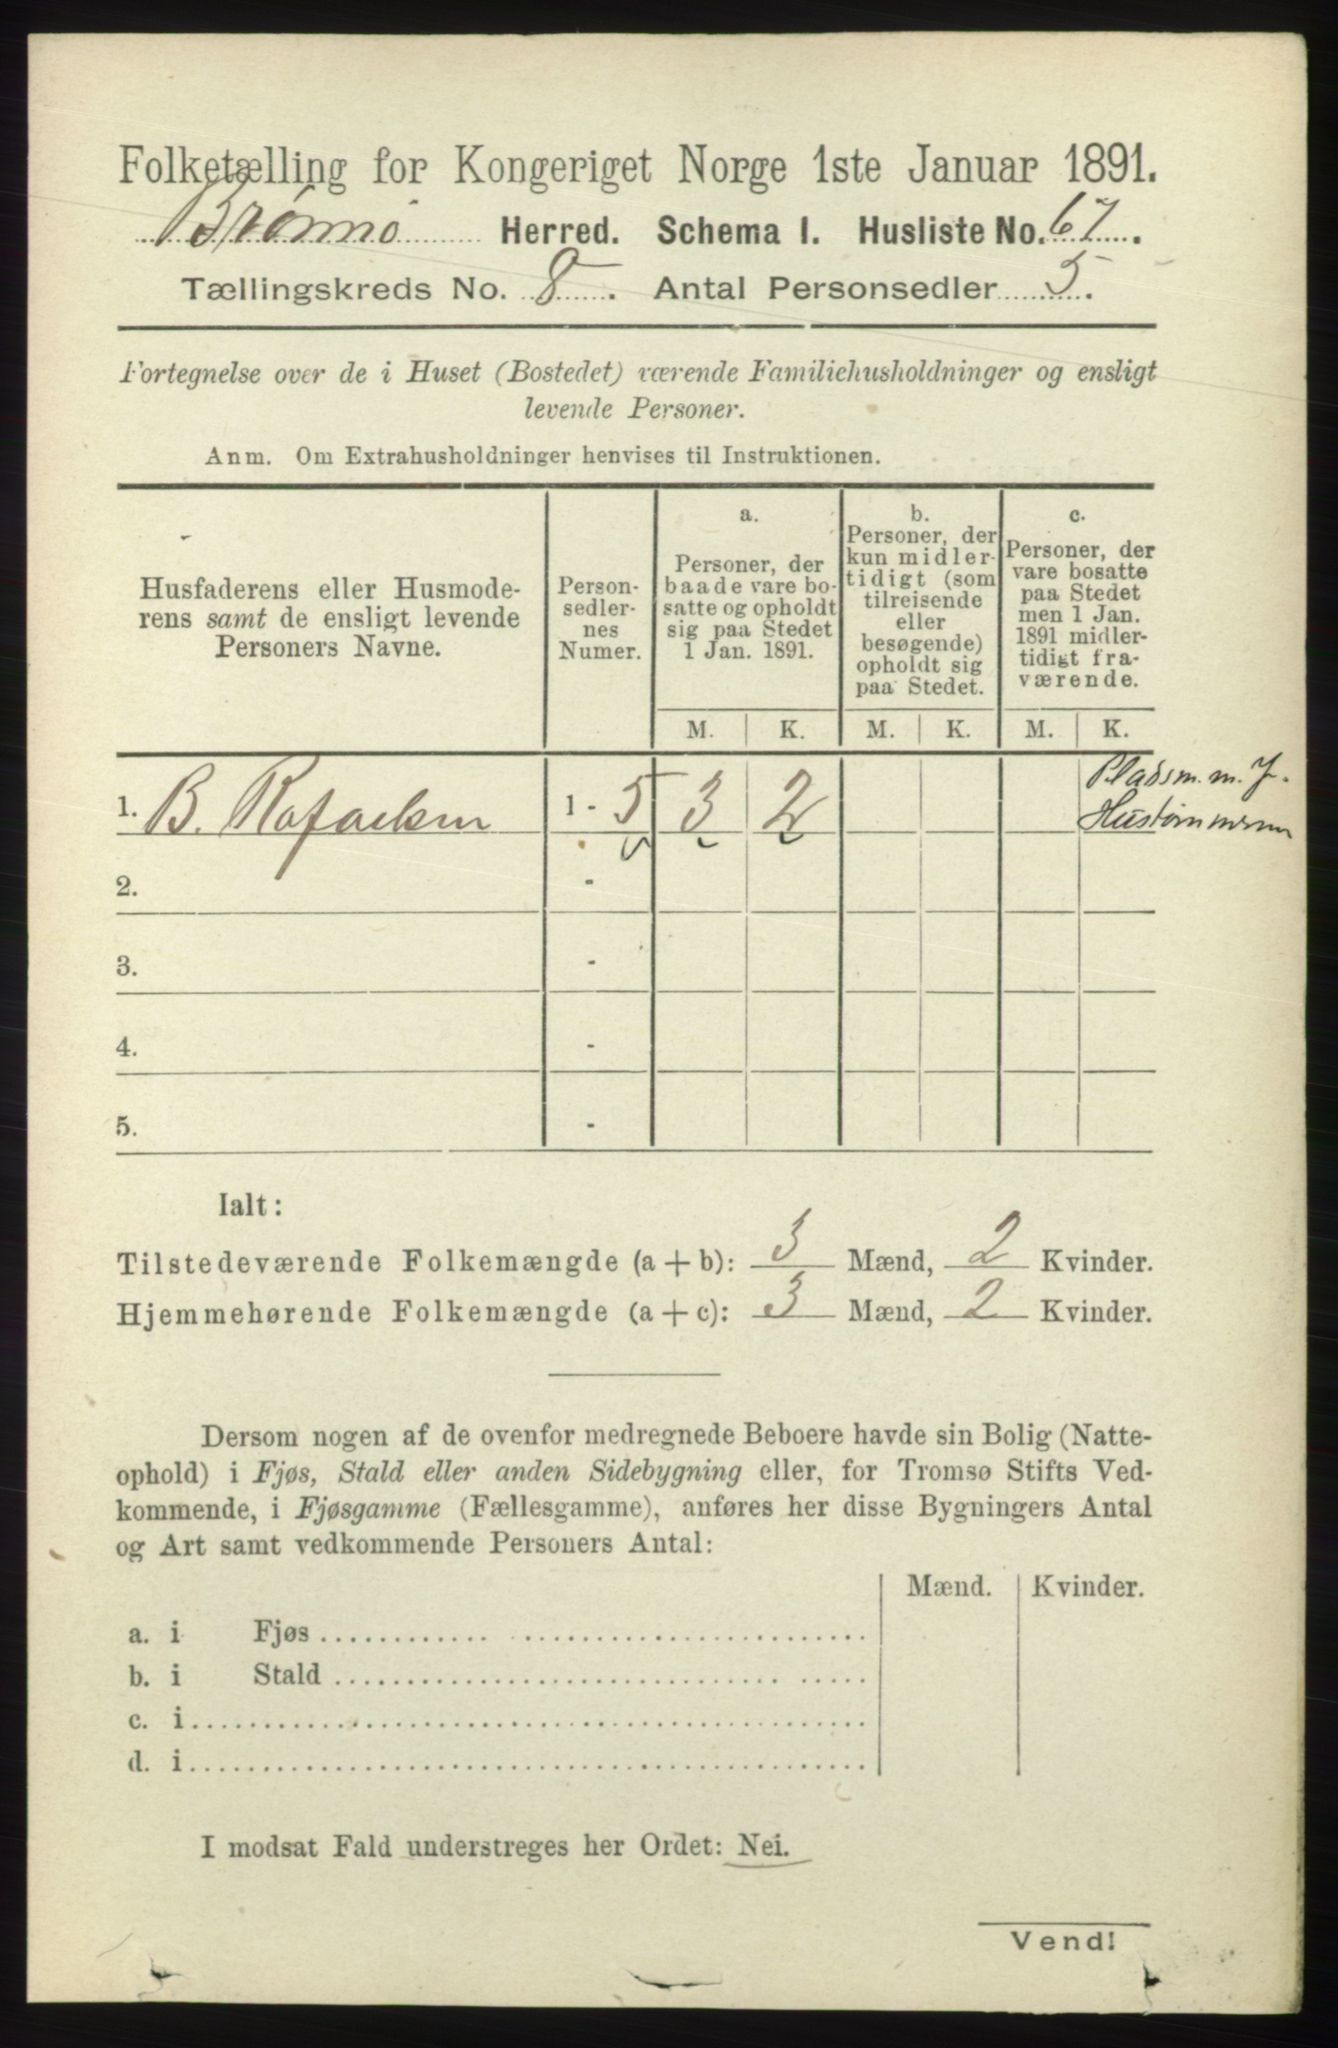 Folketælling for Kongeriget Norge 1ste Januar 1891.
Brønnø Herred. Schema I. Husliste No. 67.
Tællingskreds No. 8. Antal Personsedler 5.
Fortegnelse over de i Huset (Bostedet) værende Familiehusholdninger og ensligt
levende Personer.
Anm. Om Extrahusholdninger henvises til Instruktionen.
Husfaderens eller Husmode-
rens samt de ensligt levende
Personers Navne.
Person-
sedler-
nes
Numer.
a.
Personer, der
baade vare bo-
satte og opholdt
sig paa Stedet
1 Jan. 1891.
b.
Personer, der
kun midler-
tidigt (som
tilreisende
eller
besøgende)
opholdt sig
paa Stedet.
c.
Personer, der
vare bosatte
paa Stedet
men 1 Jan.
1891 midler-
tidigt fra-
værende.
M. K. M. K. M. K.
Pladsm. m. J.
1. B. Rafaelsen 1 - 5 3 2
2. -
3. -
4. -
5. -
Ialt:
Tilstedeværende Folkemængde (a + b): 3 Mænd, 2 Kvinder.
Hjemmehørende Folkemængde (a + c): 3 Mænd, 2 Kvinder.
Dersom nogen af de ovenfor medregnede Beboere havde sin Bolig (Natte-
ophold) i Fjøs, Stald eller anden Sidebygning eller, for Tromsø Stifts Ved-
kommende, i Fjøsgamme (Fællesgamme), anføres her disse Bygningers Antal
og Art samt vedkommende Personers Antal:
Mænd. Kvinder.
a. i Fjøs
b. i Stald
c. i
d. i
I modsat Fald understreges her Ordet: Nei.
Vend!